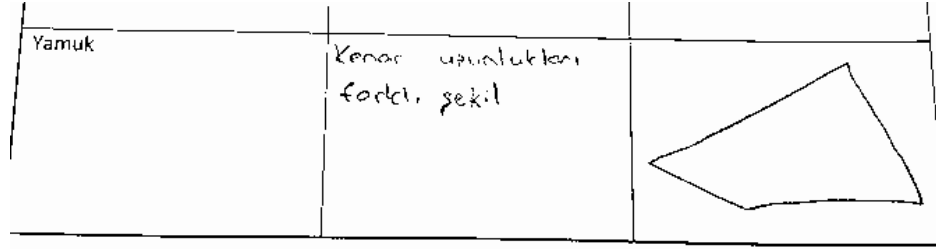 Yamuk
Kenar uzunlukları
farklı şekil